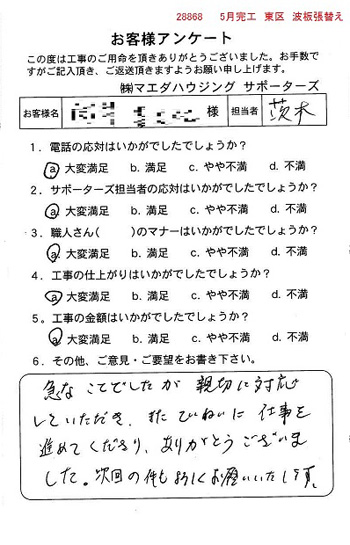 28868 5月完工 東区 波板張替え
お客様アンケート
この度は工事のご用命を頂きありがとうございました。お手数で
すがご記入頂き、ご返送頂きますようお願い申し上げます。
㈱マエダハウジング サポーターズ
お客様名 様 担当者 茨木
1．電話の応対はいかがでしたでしょうか？
a 大変満足 b. 満足 c. やや不満 d. 不満
2．サポーターズ担当者の応対はいかがでしたでしょうか？
a 大変満足 b. 満足 c. やや不満 d. 不満
3．職人さん( )のマナーはいかがでしたでしょうか？
a 大変満足 b. 満足 c. やや不満 d. 不満
4．工事の仕上がりはいかがでしたでしょうか？
a 大変満足 b. 満足 c. やや不満 d. 不満
5．工事の金額はいかがでしたでしょうか？
a 大変満足 b. 満足 c. やや不満 d. 不満
6．その他、ご意見・ご要望をお書き下さい。
急なことでしたが 親切に対応
していただき、また ていねいに 仕事を
進めてくださり、ありがとうございま
した。次回の件もよろしくお願いいたします。